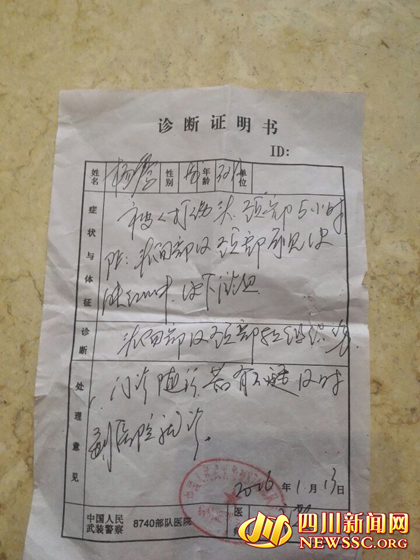 诊断证明书
ID:
姓名 杨 性别 男 年龄 单位
症状与体征
被人打伤头、颈部5小时
头面部及颈部可见皮
肤红肿、皮下淤血
诊断
头面部及颈部软组织
处理意见
门诊随诊 若有不适及时
到医院就诊。
2016年1月13日
中国人民武装警察 8740部队医院 医
四川新闻网
WWW.NEWSSC.ORG